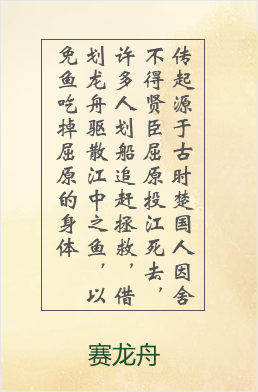 传起源于古时楚国人因舍
不得贤臣屈原投江死去，
许多人划船追赶拯救，借
划龙舟驱散江中之鱼，以
免鱼吃掉屈原的身体
赛龙舟